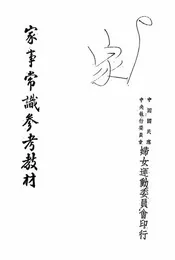 中國國民黨
中央執行委員會
婦女運動委員會印行
家
家事常識參考教材